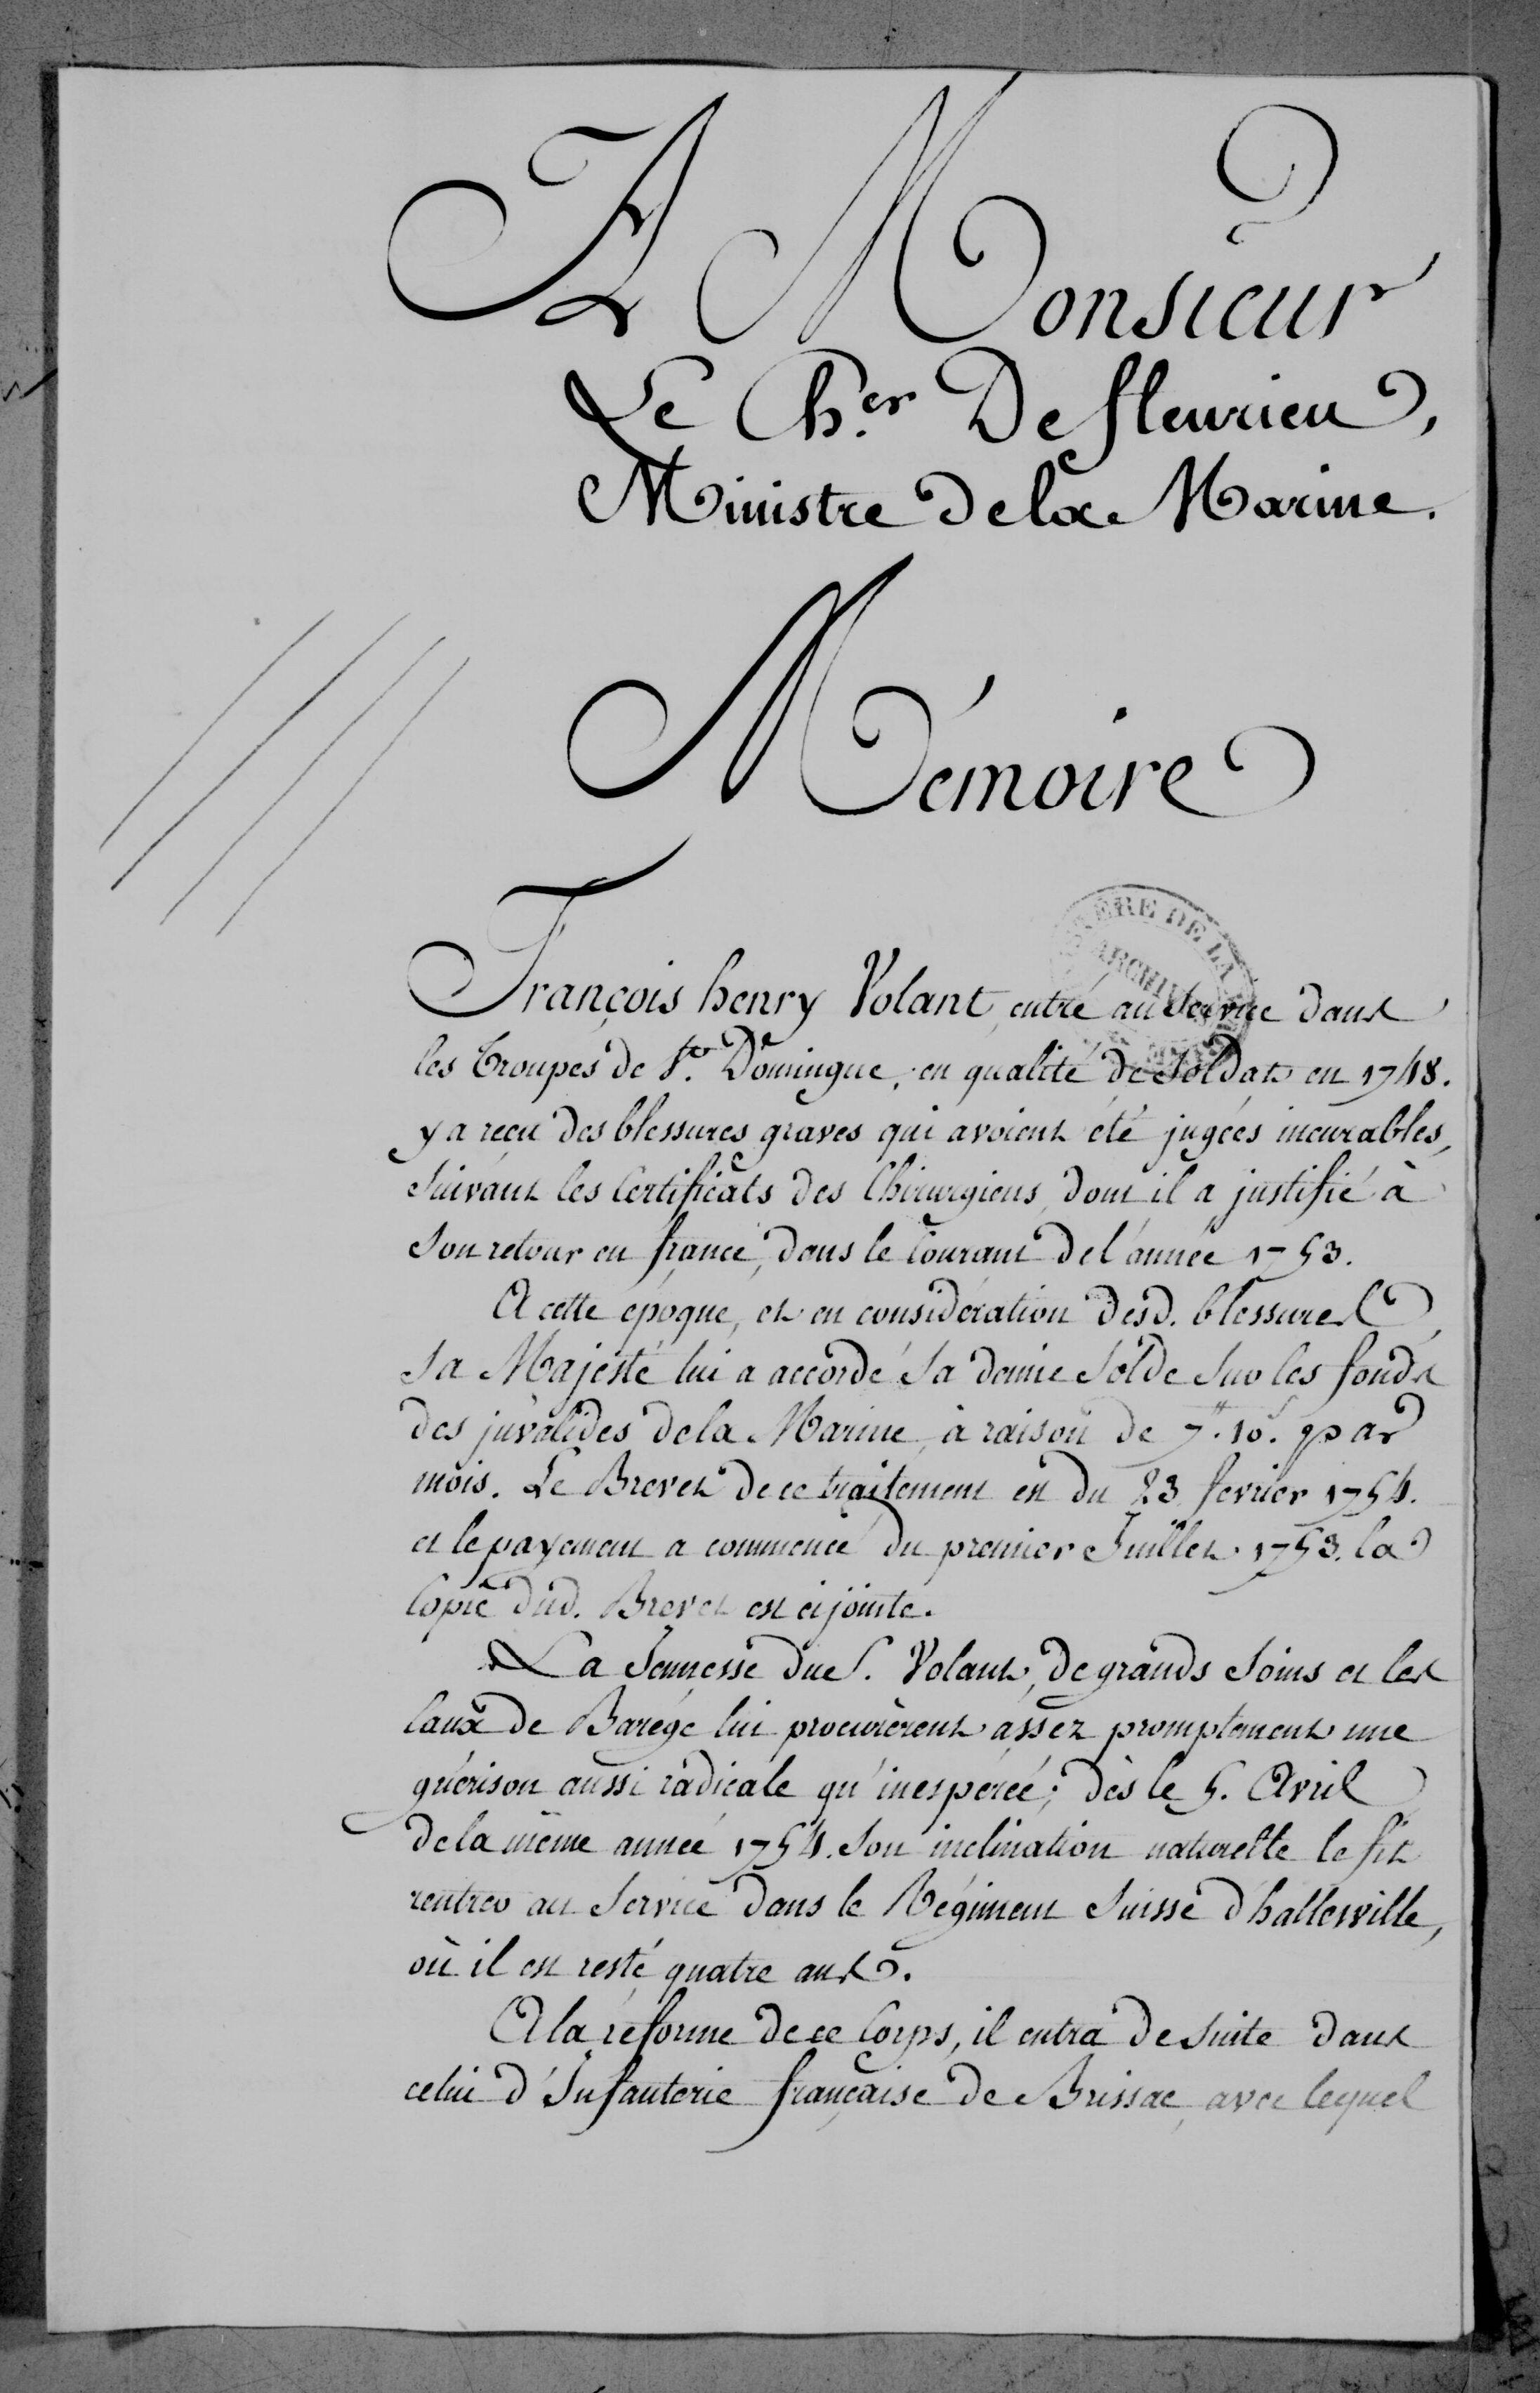 A Monsieur
Le Ch.er De fleurieu,
Ministre de la Marine.
Mémoire
François henry Volant, entré au Service dans
les Troupes de St. Domingue, en qualité de Soldat en 1748.
y a reçu des blessures graves qui avoient été jugées incurables,
Suivant les Certificats des Chirurgiens, dont il a justifié à
Son retour en france, dans le Courant de l'année 1753.
A cette époque, et en considération desd. blessures,
Sa Majesté lui a accordé Sa demie Solde Sur les fonds
des invalides de la Marine, à raison de 7.# 10.s par
mois. Le Brevet de ce traitement est du 23 fevrier 1754.
et le payement a commencé du premier Juillet 1753. la
Copie dud. Brevet est ci jointe.
La Jeunesse du S. Volant, de grands Soins et les
Eaux de Barége lui procurèrent assez promptement une
guérison aussi radicale qu'inespérée; dès le 5. Avril
de la même année 1754. Son inclination naturelle le fit
rentrer au Service dans le Régiment Suisse d'hallewille,
où il est resté quatre ans.
A la réforme de ce Corps, il entra de Suite dans
celui d'Infanterie française de Brissac, avec lequel
ARCHIVES
DE LA